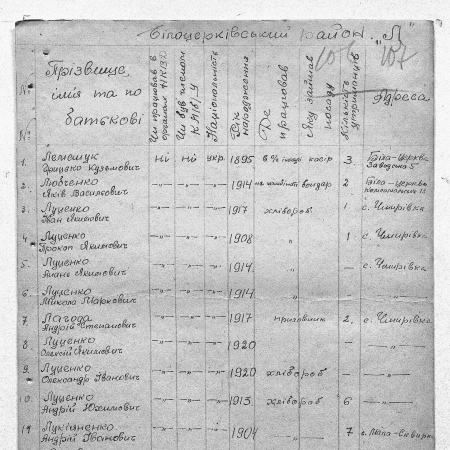 Білоцерківський район. "Л"
107
№№ Прізвище, імія та по батькові Чи працював в органах НКВД Чи був членом КП(б)У Національність Рік народження Де працював Яку займав посаду Кількість утриманців Адреса
1. Лемещук Грицько Кузьмович ні ні укр. 1895 касір 3 Біла-Церква Заводська 5
2. Любченко Яків Васильович " " " 1914 бондар 2 Біла-Церква
3. Луценко Іван Якимович " " " 1917 хлібороб 1 с. Чмирівка
4. Луценко Прокоп Якимович " " " 1908 " 1 с. Чмирівка
5. Луценко Якимович " " " 1914. " — с. Чмирівка
6. Луценко Микола Маркович " " " 1914. " —
7. Лагода Андрій Степанович " " " 1917 2. с. Чмирівка
8. Луценко Олексій Якимович " " " 1920 — —
9. Луценко Олександр Іванович " " " 1920 хлібороб — —
10. Луценко Андрій Юхимович " " " 1913 хлібороб 6 —
11. Лукіяненко Андрій Іванович " " " 1904 " 7 с. Мала-Сквирка